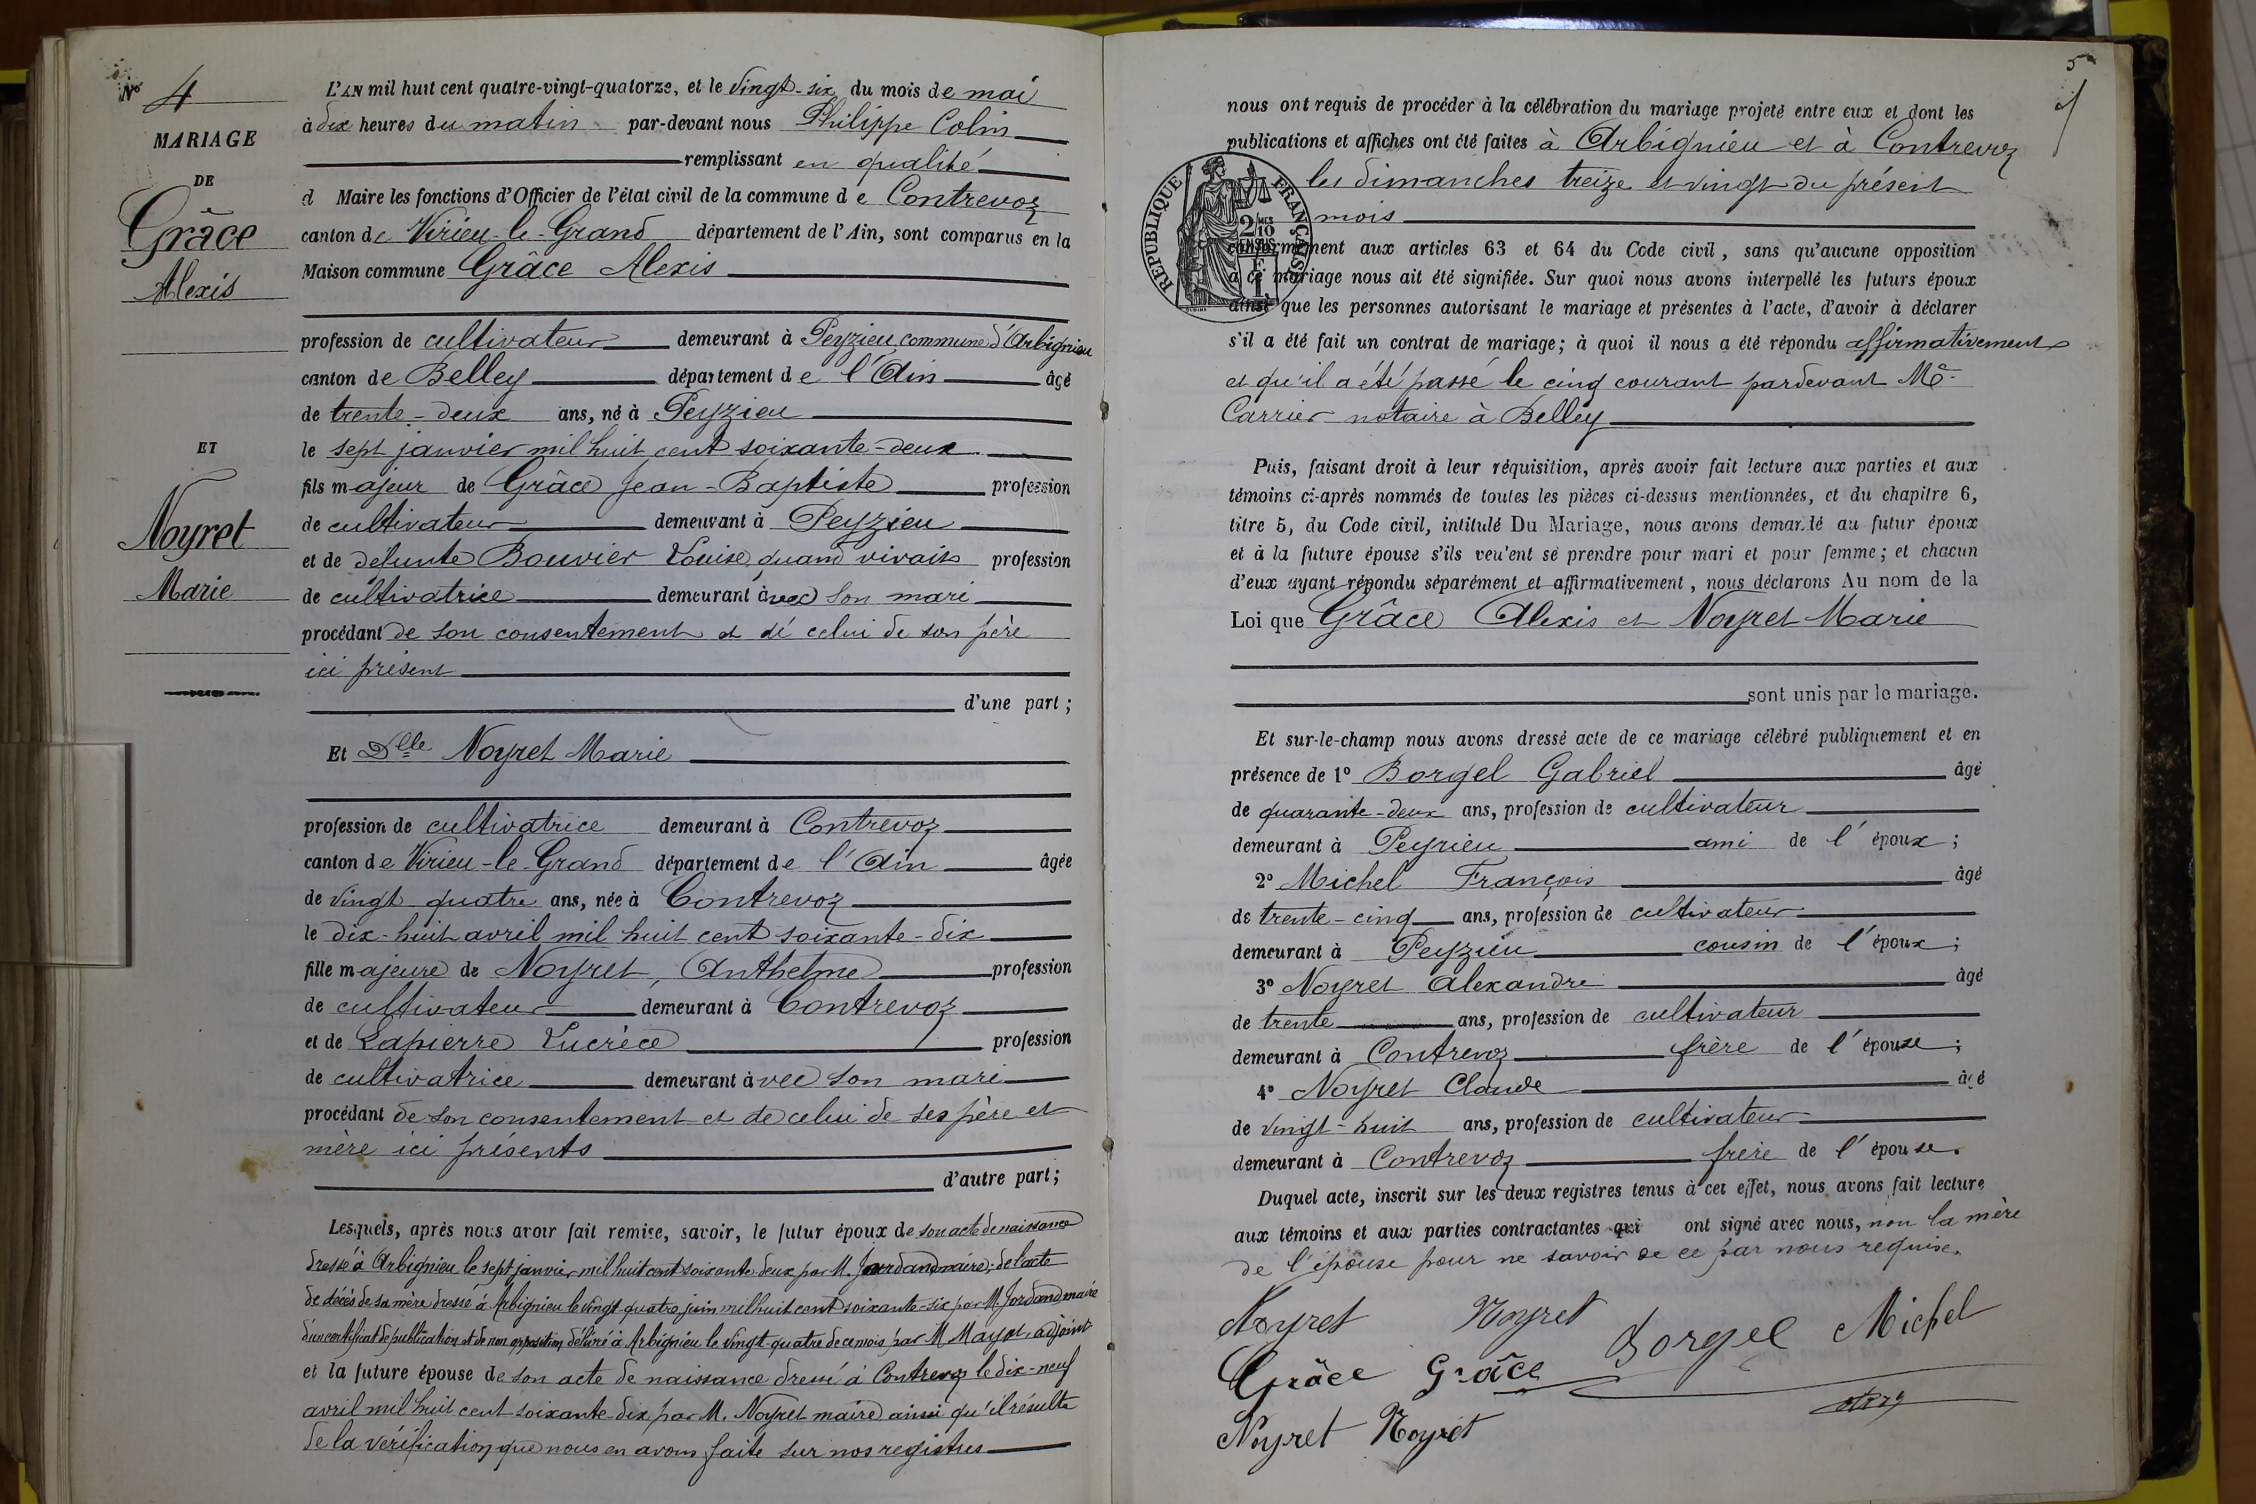 Nº 4
MARIAGE
DE
Grâce
Alexis
ET
Noyret
Marie
L'AN mil huit cent quatre-vingt-quatorze, et le vingt-six du mois de mai
à dix heures du matin par-devant nous Philippe Colin
remplissant en qualité
d Maire les fonctions d'Officier de l'état civil de la commune de Contrevoz
canton de Virieu-le-Grand département de l'Ain, sont comparus en la
Maison commune Grâce Alexis
profession de cultivateur demeurant à Peyzieu, commune d'Arbignieu
canton de Belley département de l'Ain âgé
de trente-deux ans, né à Peyzieu
le sept janvier mil huit cent soixante-deux
fils majeur de Grâce Jean-Baptiste profession
de cultivateur demeurant à Peyzieu
et de défunte Bouvier Louise, quand vivait profession
de cultivatrice demeurant avec son mari
procédant de son consentement et de celui de son père
ici présent
d'une part;
Et Dlle Noyret Marie
profession de cultivatrice demeurant à Contrevoz
canton de Virieu-le-Grand département de l'Ain âgée
de vingt quatre ans, née à Contrevoz
le dix-huit avril mil huit cent soixante-dix
fille majeure de Noyret, Anthelme profession
de cultivateur demeurant à Contrevoz
et de Lapierre Lucrèce profession
de cultivatrice demeurant avec son mari
procédant de son consentement et de celui de ses père et
mère ici présents
d'autre part;
Lesquels, après nous avoir fait remise, savoir, le futur époux de son acte de naissance
dressé à Arbignieu le sept janvier mil huit cent soixante deux par M. Jourdand maire; de l'acte
de décès de sa mère dressé à Arbignieu le vingt-quatre juin mil huit cent soixante-six par M. Jordand maire
d'un certificat de publication et de non opposition délivré à Arbignieu le vingt-quatre de ce mois par M Mayot, adjoint
et la future épouse de son acte de naissance dressé à Contrevoz le dix-neuf
avril mil huit cent soixante-dix par M. Noyret maire ainsi qu'il résulte
de la vérification que nous en avons faite sur nos registres
5
nous ont requis de procéder à la célébration du mariage projeté entre eux et dont les
publications et affiches ont été faites à Arbignieu et à Contrevoz
les dimanches treize et vingt du présent
mois
REPUBLIQUE FRANÇAISE
2/10 MES EN SUS
conformément aux articles 63 et 64 du Code civil, sans qu'aucune opposition
à ce mariage nous ait été signifiée. Sur quoi nous avons interpellé les futurs époux
ainsi que les personnes autorisant le mariage et présentes à l'acte, d'avoir à déclarer
s'il a été fait un contrat de mariage; à quoi il nous a été répondu affirmativement
et qu'il a été passé le cinq courant pardevant Me
Carrier notaire à Belley
Puis, faisant droit à leur réquisition, après avoir fait lecture aux parties et aux
témoins ci-après nommés de toutes les pièces ci-dessus mentionnées, et du chapitre 6,
titre 5, du Code civil, intitulé Du Mariage, nous avons demandé au futur époux
et à la future épouse s'ils veulent se prendre pour mari et pour femme; et chacun
d'eux ayant répondu séparément et affirmativement, nous déclarons Au nom de la
Loi que Grâce Alexis et Noyret Marie
sont unis par le mariage.
Et sur-le-champ nous avons dressé acte de ce mariage célébré publiquement et en
présence de 1º Borgel Gabriel âgé
de quarante-deux ans, profession de cultivateur
demeurant à Peyrieu ami de l'époux;
2º Michel François âgé
de trente-cinq ans, profession de cultivateur
demeurant à Peyzieu cousin de l'époux;
3º Noyret Alexandre âgé
de trente ans, profession de cultivateur
demeurant à Contrevoz frère de l'épouse;
4º Noyret Claude âgé
de vingt-huit ans, profession de cultivateur
demeurant à Contrevoz frère de l'épouse.
Duquel acte, inscrit sur les deux registres tenus à cet effet, nous avons fait lecture
aux témoins et aux parties contractantes qui ont signé avec nous, non la mère
de l'épouse pour ne savoir de ce par nous requise.
Noyret Noyret Borgel Michel
Grâce Grâce
Noyret Noyret